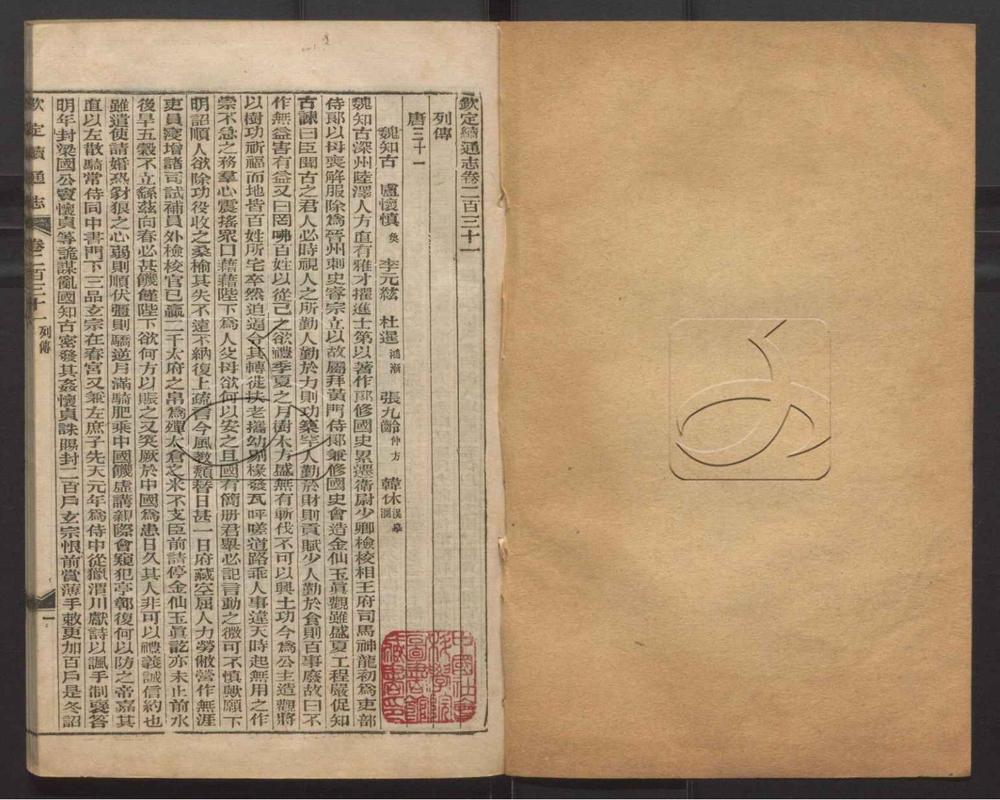 欽定續通志卷二百三十一
列傳
唐三十一
魏知古 盧懷慎奐 李元紘 杜暹鴻漸 張九齡仲方 韓休滉 洄
魏知古深州陸澤人方直有雅才擢進士第以著作郎修國史累遷衛尉少卿檢校相王府司馬神龍初為吏部
侍郎以母喪解服除為晉州刺史睿宗立以故屬拜黃門侍郎兼修國史會造金仙玉眞觀雖盛夏工程嚴促知
古諫曰臣聞古之君人必時視人之所勤人勤於力則功築罕人勤於財則貢賦少人勤於食則百事廢故曰不
作無益害有益又曰罔咈百姓以從己之欲禮季夏之月樹木方盛無有斬伐不可以興土功今為公主造觀將
以樹功祈福而地皆百姓所宅卒然迫逼令其轉徙扶老攜幼剔椽發瓦呼嗟道路乖人事違天時起無用之作
崇不急之務羣心震搖眾口藉藉陛下為人父母欲何以安之且國有簡册君舉必記言動之微可不慎歟願下
明詔順人欲除功役收之桑榆其失不遠不納復上疏言今風教頹替日甚一日府藏空屈人力勞敝營作無涯
吏員寖增諸司試補員外檢校官已贏二千太府之帛為殫太倉之米不支臣前請停金仙玉眞訖亦未止前水
後旱五穀不立繇茲向春必甚饑饉陛下欲何方以賑之又突厥於中國為患日久其人非可以禮義誠信約也
雖遣使請婚恐豺狼之心弱則順伏彊則驕逆月滿騎肥乘中國饑虛講親際會窺犯亭鄣復何以防之帝嘉其
直以左散騎常侍同中書門下三品玄宗在春宮又兼左庶子先天元年為侍中從獵渭川獻詩以諷手制褒答
明年封梁國公竇懷貞等詭謀亂國知古密發其姦懷貞誅賜封二百戶玄宗恨前賞薄手敕更加百戶是冬詔
欽定續通志 卷二百三十一 列傳 一
中國社會科學院圖書館藏書印